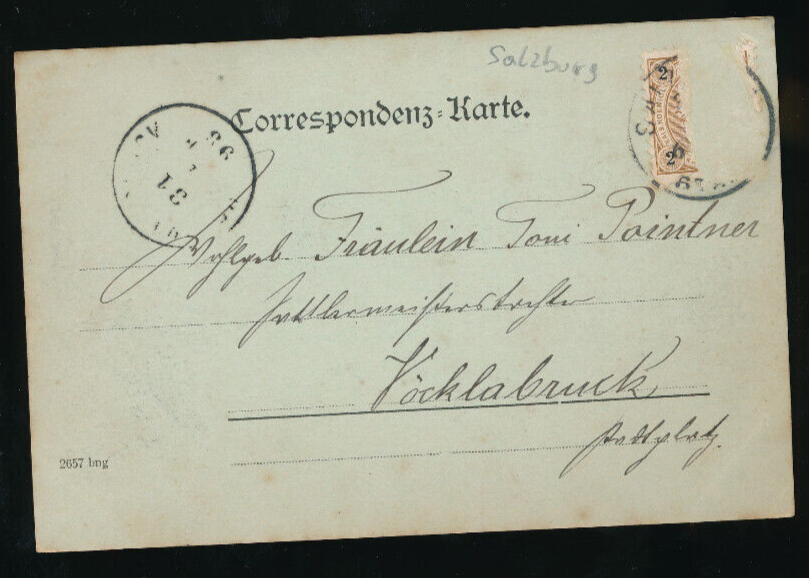 Salzburg
Correspondenz-Karte.
2
2
31
98
Wohlgeb. Fräulein Toni Pointner
Sattlermeisterstochter
Vöcklabruck
Stadtplatz.
2657 bng